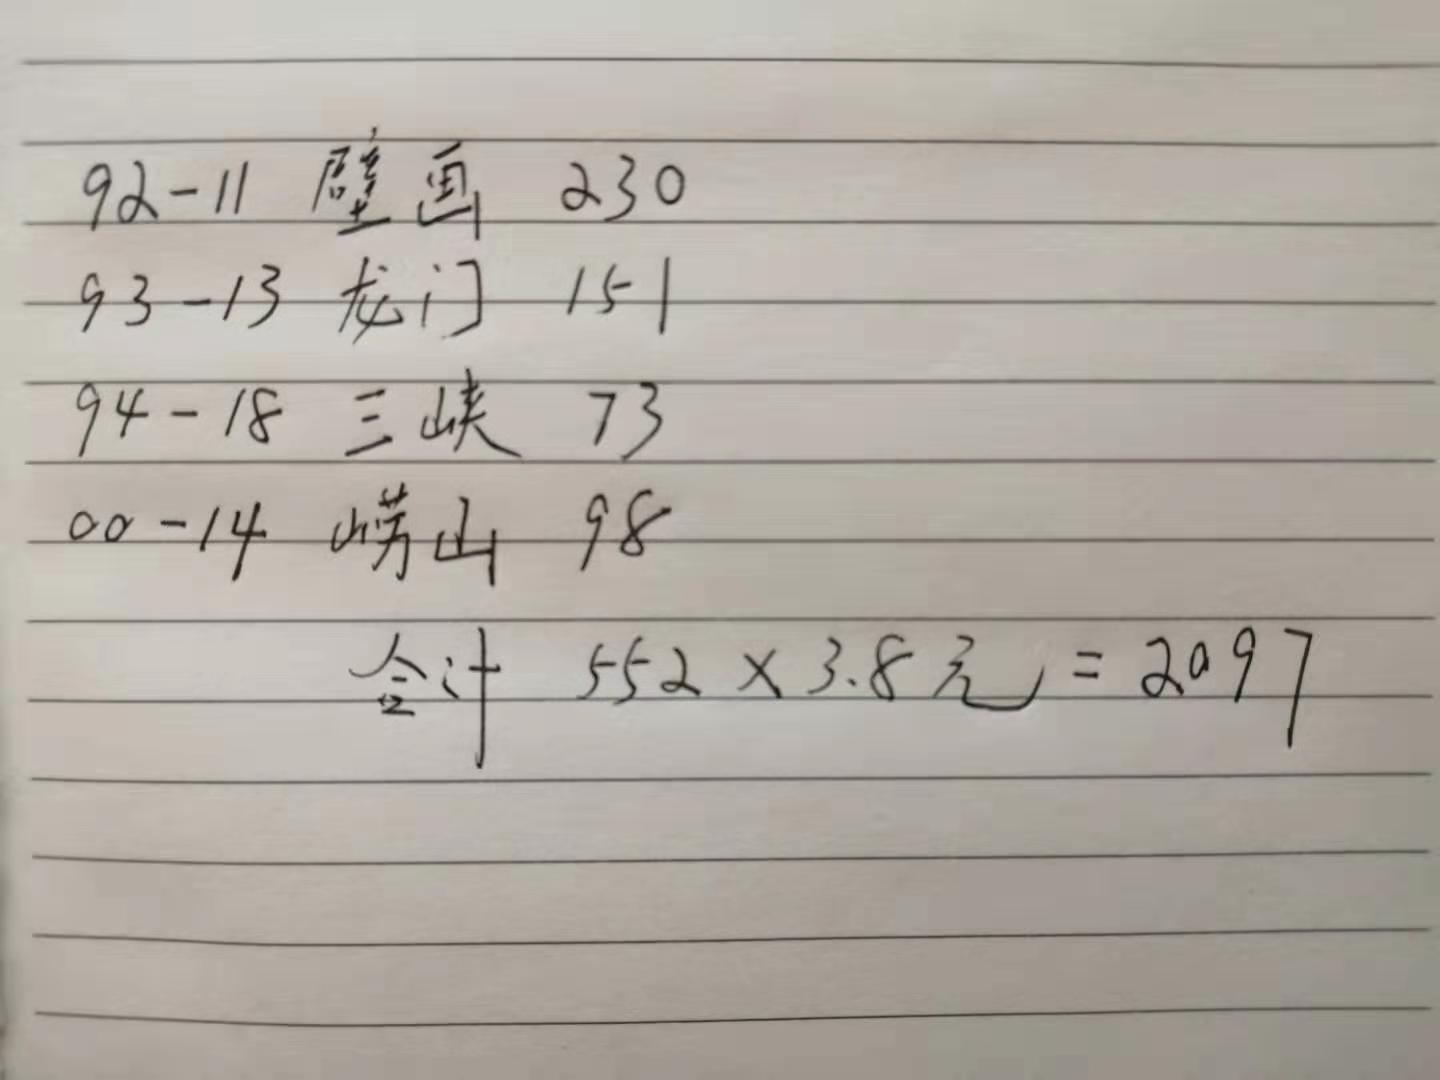 92-11 壁画 230
93-13 龙门 151
94-18 三峡 73
00-14 崂山 98
合计 552×3.8元=2097